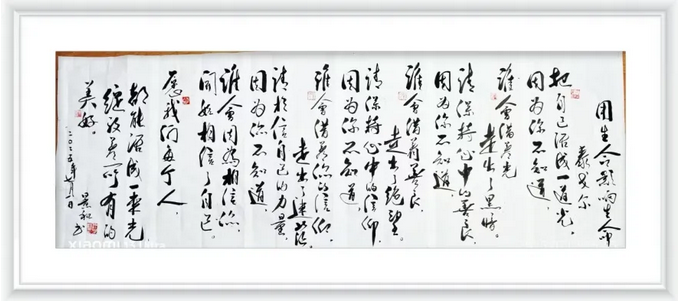 用生命影响生命
泰戈尔
把自己活成一道光,
因为你不知道,
谁会借着光
走出了黑暗。
请保持心中的善良,
因为你不知道,
谁会借着善良,
走出了绝望。
请保持心中的信仰,
因为你不知道,
谁会借着你的信仰,
走出了迷茫。
请相信自己的力量,
因为你不知道,
谁会因为相信你,
开始相信了自己。
愿我们每个人,
都能活成一束光
绽放着所有的
美好。
二〇二五年七月一日
书
xiaomi 15 Ultra